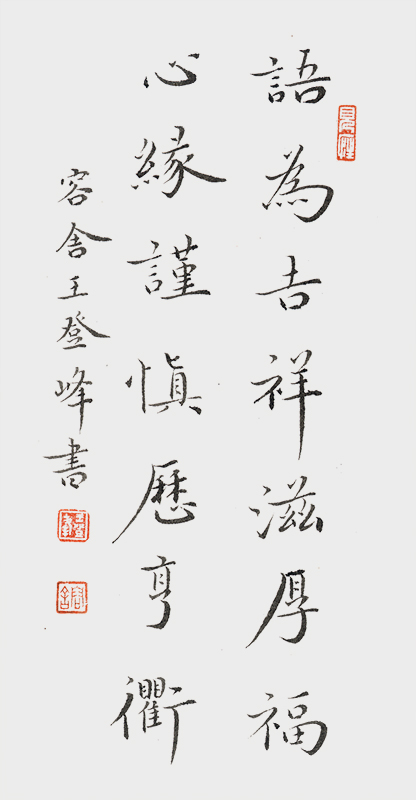 語為吉祥滋厚福
心緣謹慎歷亨衢
容舍王登峰書